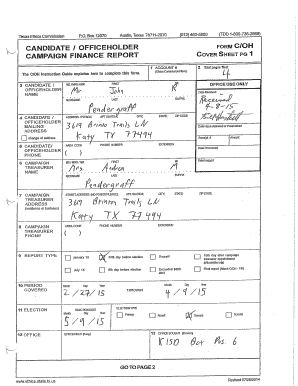 Texas Ethics Commission P.O. Box 12070 Austin, Texas 78711-2070 (512) 463-5800 (TDD 1-800-735-2989)
CANDIDATE / OFFICEHOLDER
CAMPAIGN FINANCE REPORT
FORM C/OH
COVER SHEET PG 1
The C/OH Instruction Guide explains how to complete this form.
1 ACCOUNT #
2 Total pages filed:
4
3 CANDIDATE / OFFICEHOLDER NAME
MS / MRS / MR FIRST MI
Mr John R
NICKNAME LAST SUFFIX
Pendergraff
OFFICE USE ONLY
Date Received
Received
4-8-15
4 CANDIDATE / OFFICEHOLDER MAILING ADDRESS
change of address
ADDRESS / PO BOX; APT / SUITE #; CITY; STATE; ZIP CODE
Trails LN
Katy TX 77494
5 CANDIDATE / OFFICEHOLDER PHONE
AREA CODE PHONE NUMBER EXTENSION
( )
Receipt # Amount
6 CAMPAIGN TREASURER NAME
MS / MRS / MR FIRST MI
Mrs. Andrea M
NICKNAME LAST SUFFIX
Pendergraff
7 CAMPAIGN TREASURER ADDRESS
(residence or business)
STREET ADDRESS (NO PO BOX PLEASE); APT / SUITE #; CITY; STATE; ZIP CODE
Trails LN
Katy TX 77494
8 CAMPAIGN TREASURER PHONE
AREA CODE PHONE NUMBER EXTENSION
( )
9 REPORT TYPE
January 15 30th day before election Runoff 15th day after campaign treasurer appointment (officeholder only)
July 15 8th day before election Exceeded $500 limit Final report (Attach C/OH - FR)
10 PERIOD COVERED
Month Day Year THROUGH Month Day Year
2/27/15 4/9/15
11 ELECTION
ELECTION DATE ELECTION TYPE
Month Day Year
5/9/15
Primary Runoff General Special
12 OFFICE
OFFICE HELD (if any)
13 OFFICE SOUGHT (if known)
KISD Pos. 6
GO TO PAGE 2
www.ethics.state.tx.us